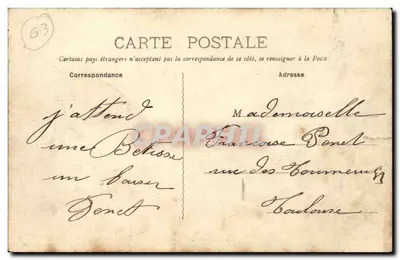 63
CARTE POSTALE
Certains pays étrangers n'acceptent pas la correspondance de ce côté, se renseigner à la Poste
Correspondance
Adresse
j'attend
une Betisse
un baiser
Mademoiselle
Francoise
rue des Tourneurs
Toulouse
CPARPHIL